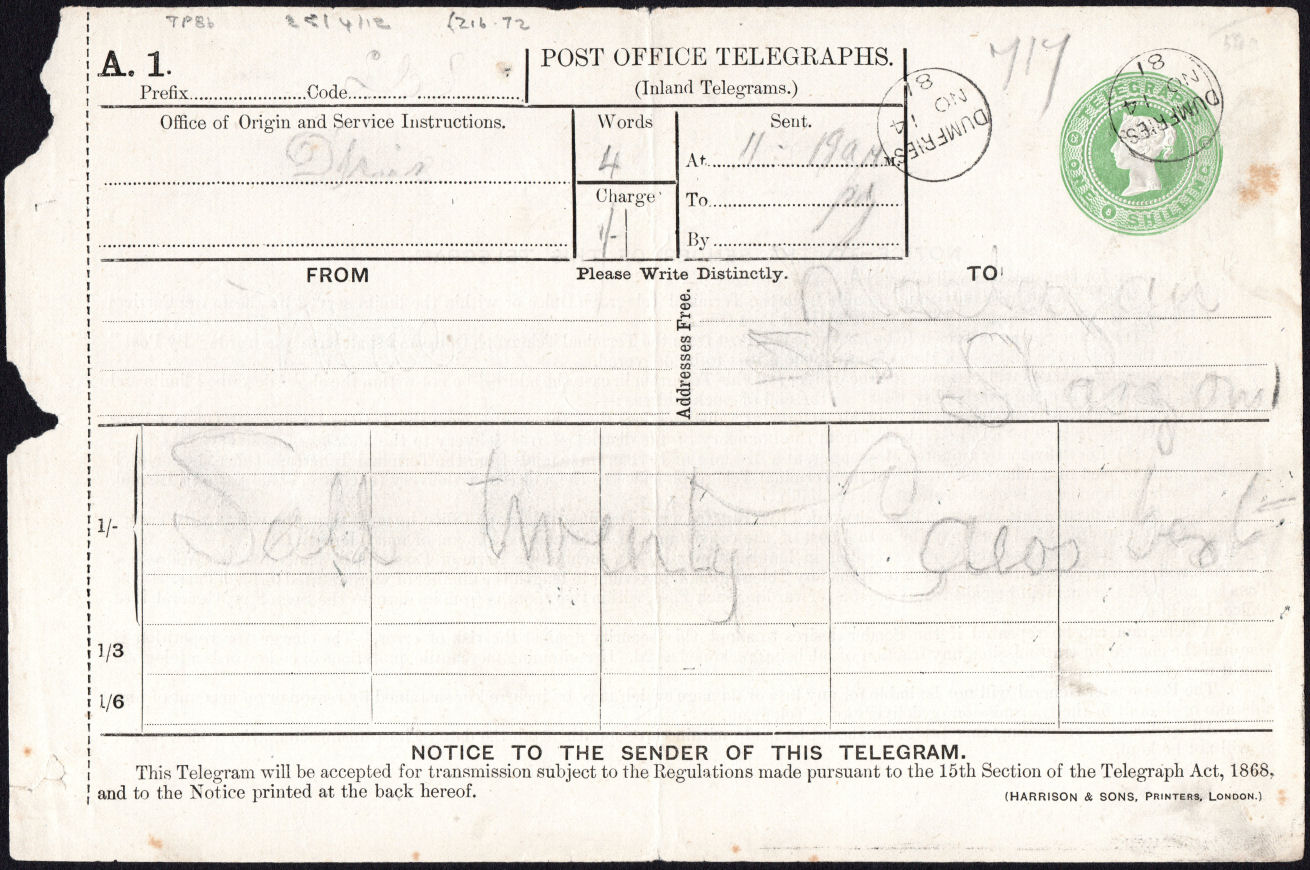 TP8b 25/4/12 £216-72
A. 1.
POST OFFICE TELEGRAPHS.
(Inland Telegrams.)
Prefix Code
717
DUMFRIES
NO 14
81
DUMFRIES
NO 14
81
TELEGRAPHS
ONE SHILLING
Office of Origin and Service Instructions.
Words
4
Charge
1/-
Sent.
At 11 - 19 am M.
To
By
FROM
Please Write Distinctly.
TO
Addresses Free.
Glasgow
1/-
Sell twenty Caleos best
1/3
1/6
NOTICE TO THE SENDER OF THIS TELEGRAM.
This Telegram will be accepted for transmission subject to the Regulations made pursuant to the 15th Section of the Telegraph Act, 1868,
and to the Notice printed at the back hereof.
(HARRISON & SONS, PRINTERS, LONDON.)